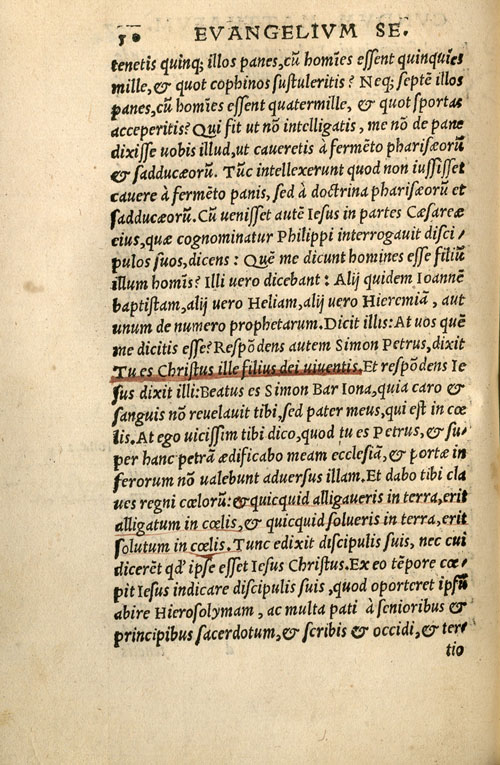 50 EVANGELIVM SE.
tenetis quinq; illos panes, cũ homĩes essent quinquies
mille, & quot cophinos sustuleritis? Neq; septẽ illos
panes, cũ homĩes essent quatermille, & quot sportas
acceperitis? Qui fit ut nõ intelligatis, me nõ de pane
dixisse uobis illud, ut caueretis à fermẽto pharisæorũ
& sadducæorũ. Tũc intellexerunt quod non iussisset
cauere à fermẽto panis, sed à doctrina pharisæorũ et
sadducæorũ. Cũ uenisset autẽ Iesus in partes Cæsareæ
eius, quæ cognominatur Philippi interrogauit disci /
pulos suos, dicens : Quẽ me dicunt homines esse filiũ
illum homĩs? Illi uero dicebant : Alij quidem Ioannẽ
baptistam, alij uero Heliam, alij uero Hieremiã , aut
unum de numero prophetarum. Dicit illis: At uos quẽ
me dicitis esse? Respõdens autem Simon Petrus, dixit
Tu es Christus ille filius dei uiuentis. Et respõdens Ie
sus dixit illi: Beatus es Simon Bar Iona, quia caro &
sanguis nõ reuelauit tibi, sed pater meus, qui est in cœ
lis. At ego uicissim tibi dico, quod tu es Petrus, & su/
per hanc petrã ædificabo meam ecclesiã, & portæ in
ferorum nõ ualebunt aduersus illam. Et dabo tibi cla
ues regni cœlorũ: & quicquid alligaueris in terra, erit
alligatum in cœlis, & quicquid solueris in terra, erit
solutum in cœlis. Tunc edixit discipulis suis, nec cui
dicerẽt qd' ipse esset Iesus Christus. Ex eo tẽpore cœ/
pit Iesus indicare discipulis suis , quod oporteret ipsũ
abire Hierosolymam , ac multa pati à senioribus &
principibus sacerdotum, & scribis & occidi, & ter/
tio